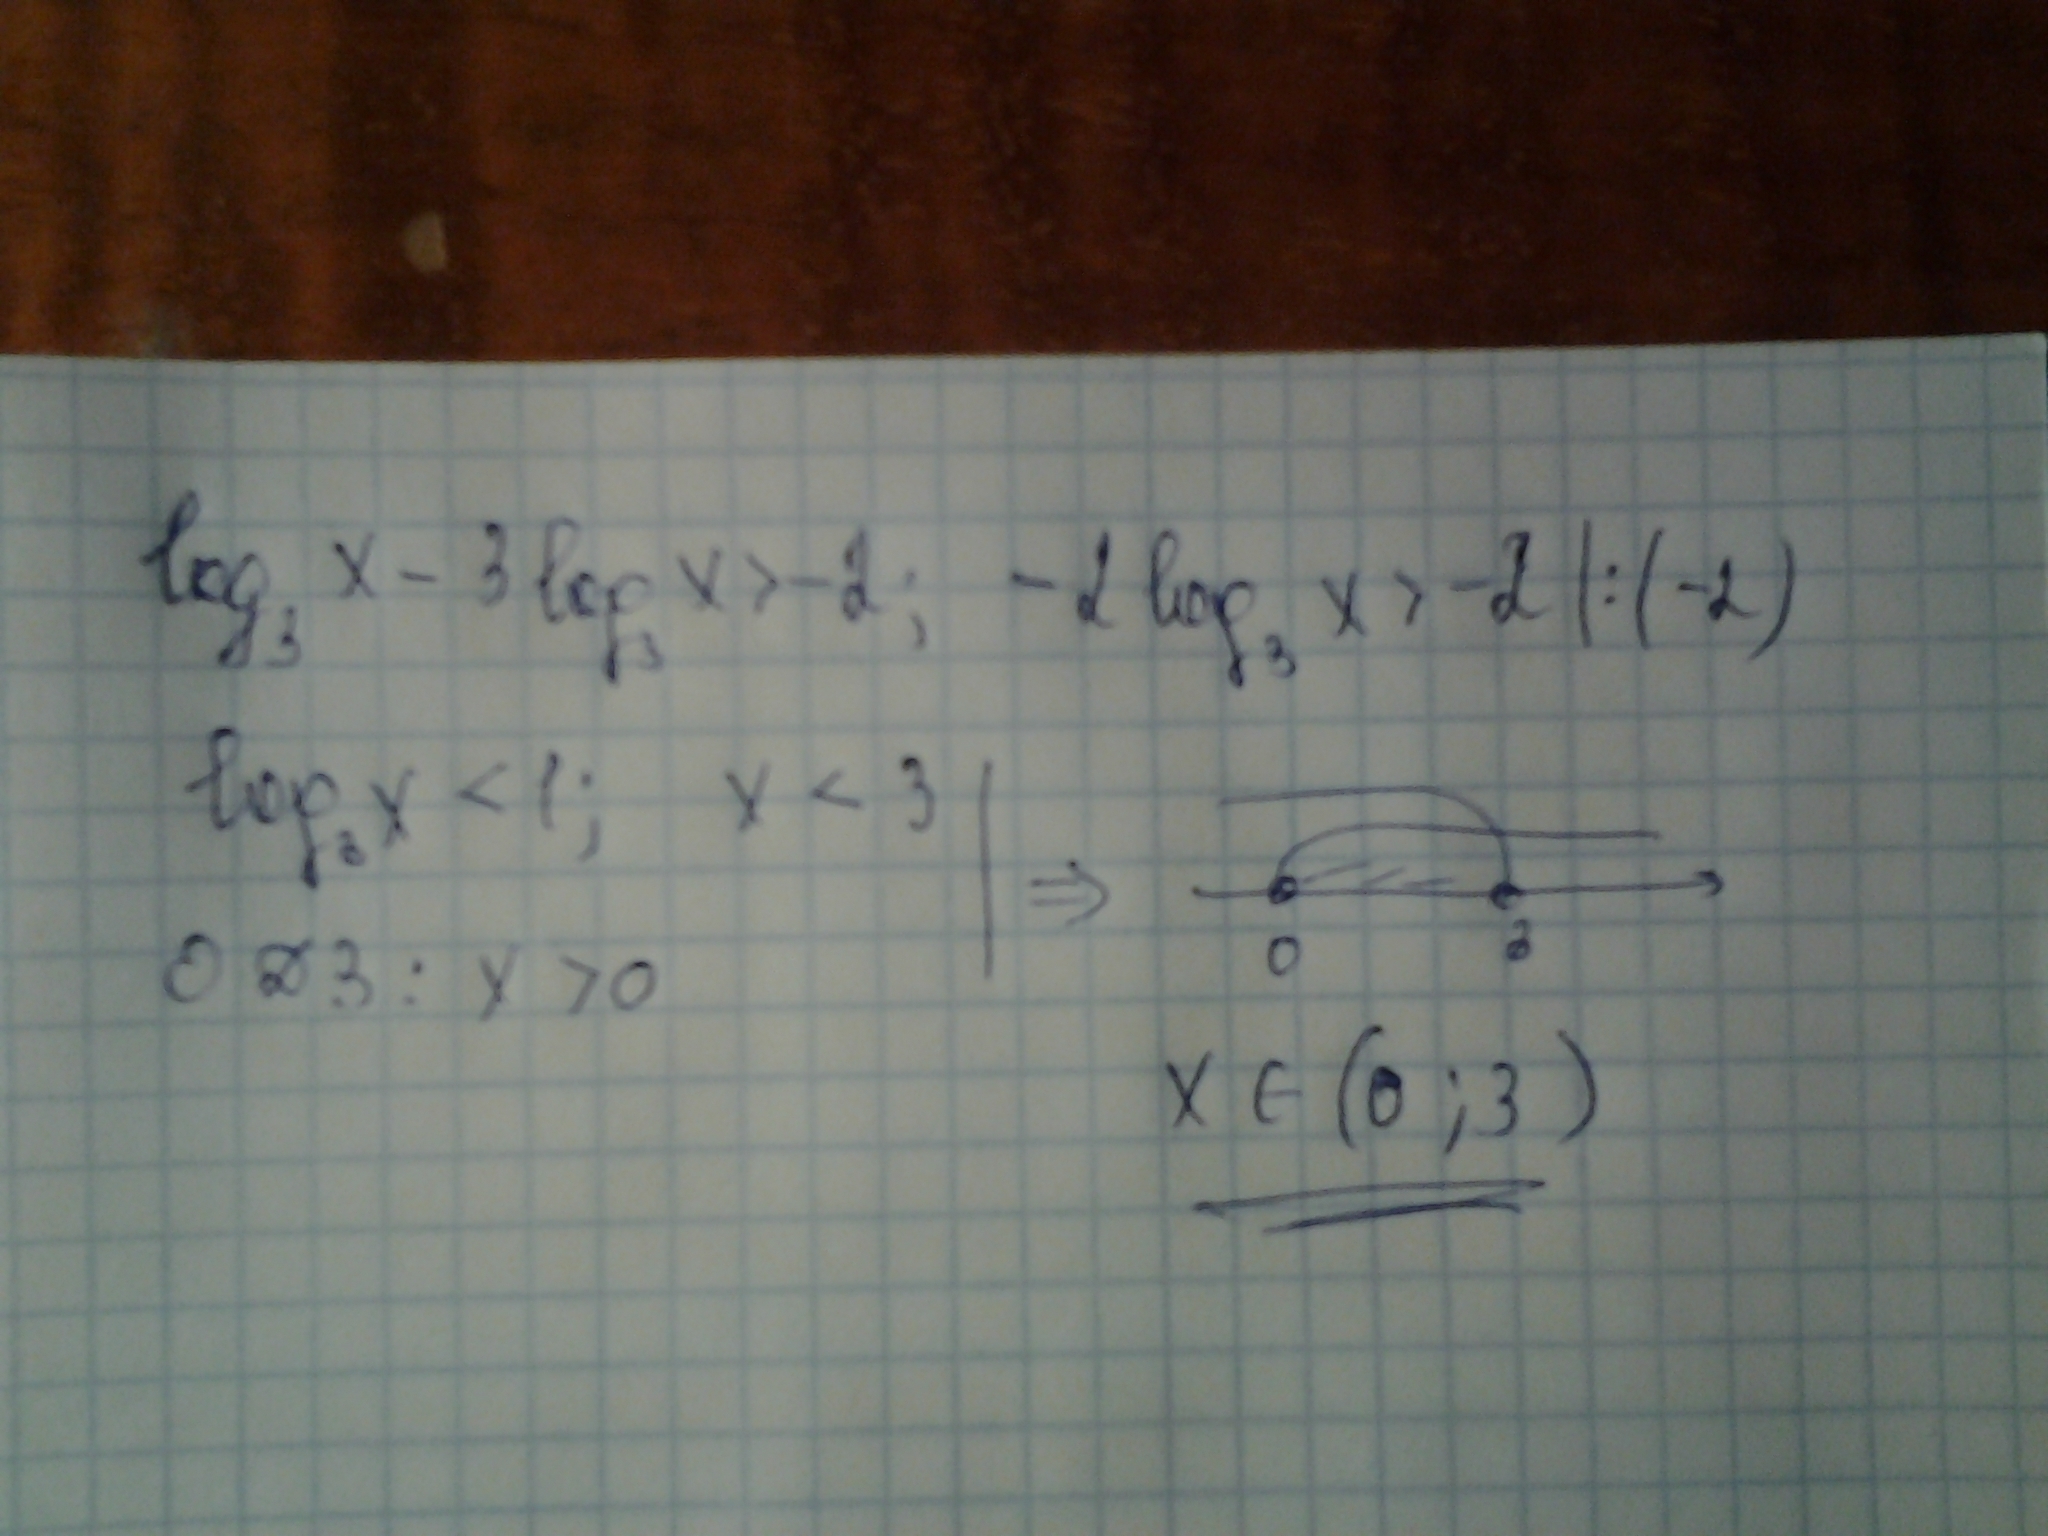 log₃ x - 3 log₃ x > -2; -2 log₃ x > -2 |:(-2)
log₃ x < 1; x < 3
ОДЗ: x > 0
⇒
0 3
x ∈ (0; 3)